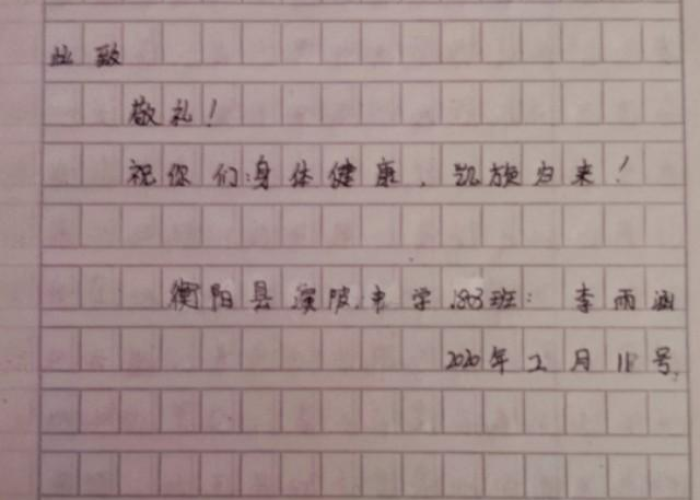 此致
敬礼！
祝你们身体健康，凯旋归来！
衡阳县演陂中学1803班：李雨涵
2020年2月11号